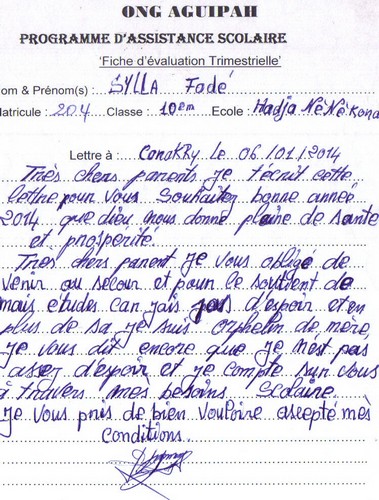 ONG AGUIPAH
PROGRAMME D'ASSISTANCE SCOLAIRE
'Fiche d'évaluation Trimestrielle'
om & Prénom(s) : SYLLA Fadé
Matricule : 204 Classe : 10em Ecole : Hadja NèNè Kona
Lettre à : ConaKRy le 06/01/2014
Très chers parents je técrit cette
lettre pour vous Souhaiter bonne année
2014 que dieu nous donne plaine de sante
et prosperité.
Tres chers parent je vous obligé de
venir au secour et pour le soutient de
mais etudes car jais pas d'espoir et en
plus de sa je suis orphelin de mère
je vous dit encore que je n'est pas
assez d'espoir et je compte sur vous
à travers mes besoins Scolaire
je vous pris de bien vouloire asepté mès
conditions.